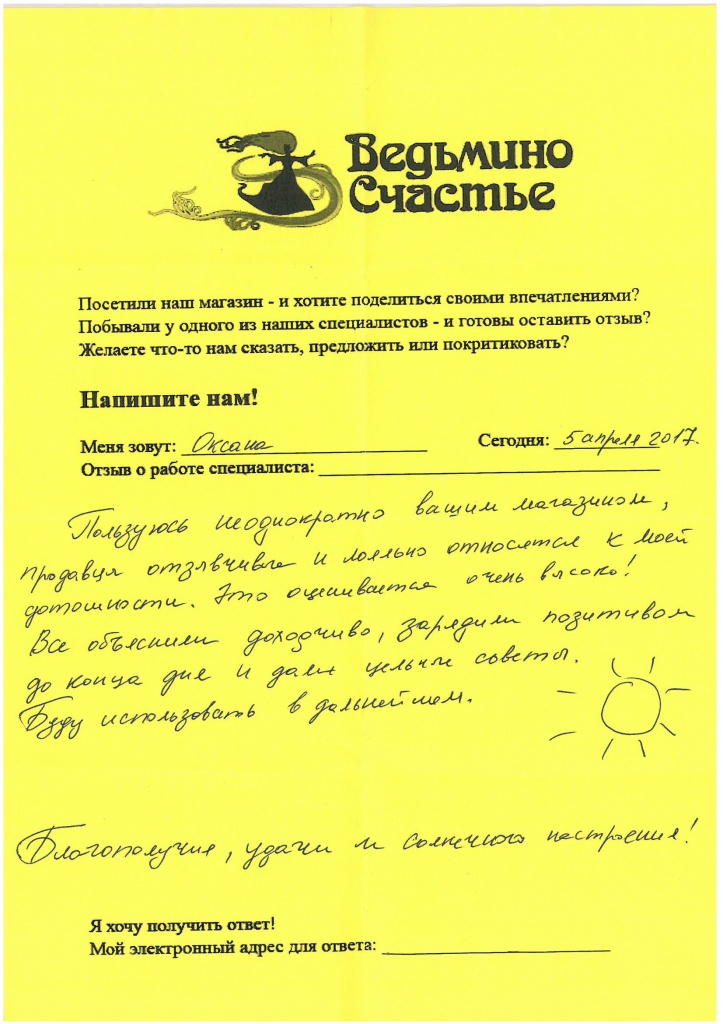 Ведьмино
Счастье
Посетили наш магазин - и хотите поделиться своими впечатлениями?
Побывали у одного из наших специалистов - и готовы оставить отзыв?
Желаете что-то нам сказать, предложить или покритиковать?
Напишите нам!
Меня зовут: Оксана Сегодня: 5 апреля 2017.
Отзыв о работе специалиста:
Пользуюсь неоднократно вашим магазином,
продавцы отзывчивые и лояльно относятся к моей
дотошности. Это оценивается очень высоко!
Все объяснили доходчиво, зарядили позитивом
до конца дня и дали цельные советы.
Буду использовать в дальнейшем.
Благополучия, удачи и солнечного настроения!
Я хочу получить ответ!
Мой электронный адрес для ответа: